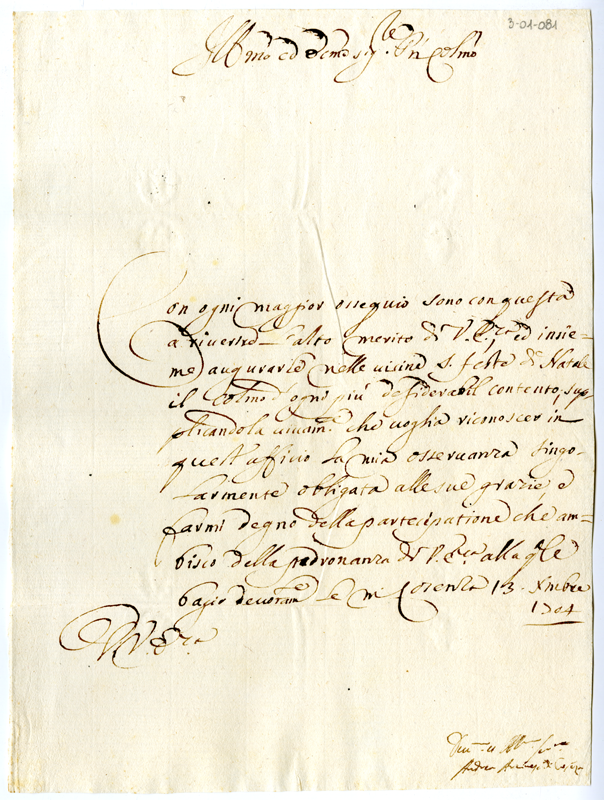 3-01-081
Ill.mo ed Ecc.mo Sig.re P.n Colmo
Con ogni maggior ossequio sono con questa
a riverire l'alto merito di V. Ecc.za, ed insie=
me augurarle nelle vicine S. feste di Natale
il colmo d'ogni più desiderabil contento, sup=
plicandola vivam.te che voglia riconoscer in
quest'afficio la mia osservanza singo=
larmente obligata alle sue grazie, e
farmi degno della partecipatione che am=
bisco della padronanza di V. Ecc.za alla q.le
bagio devotam.e le m. Cosenza 13. Xmbre
1704
D. V. Ecc.za
Andrea Arciv. di Cosenza